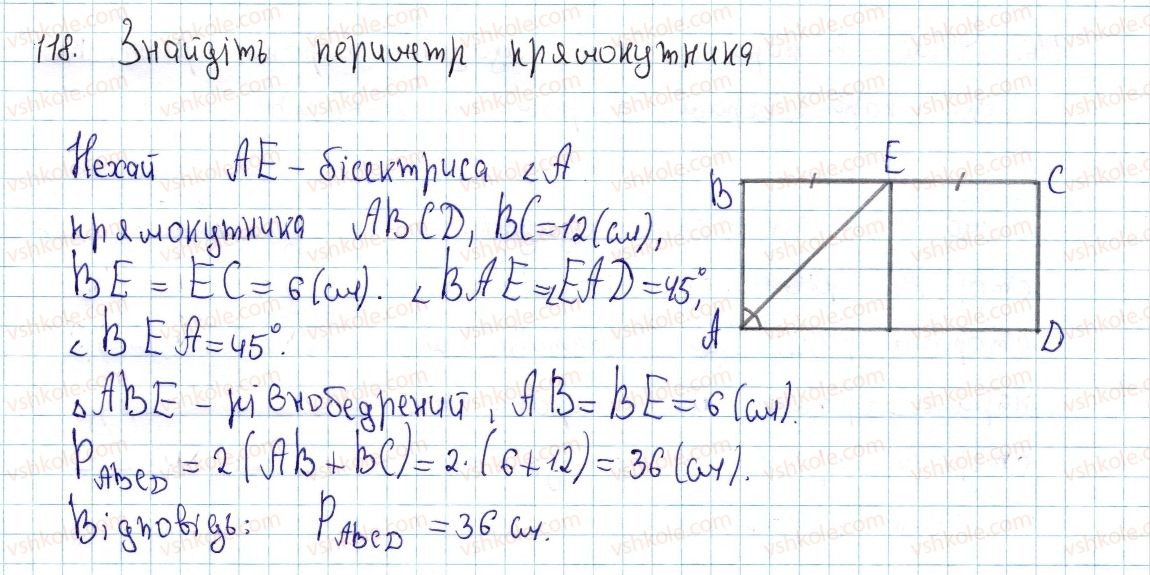 118. Знайдіть периметр прямокутника
Нехай AE – бісектриса ∠A
прямокутника ABCD, BC = 12 (см),
BE = EC = 6 (см). ∠BAE = ∠EAD = 45°,
∠BEA = 45°.
△ABE – рівнобедрений, AB = BE = 6 (см).
P_ABCD = 2(AB + BC) = 2·(6+12) = 36 (см).
Відповідь: P_ABCD = 36 см.
B E C
A D
vshkole.com